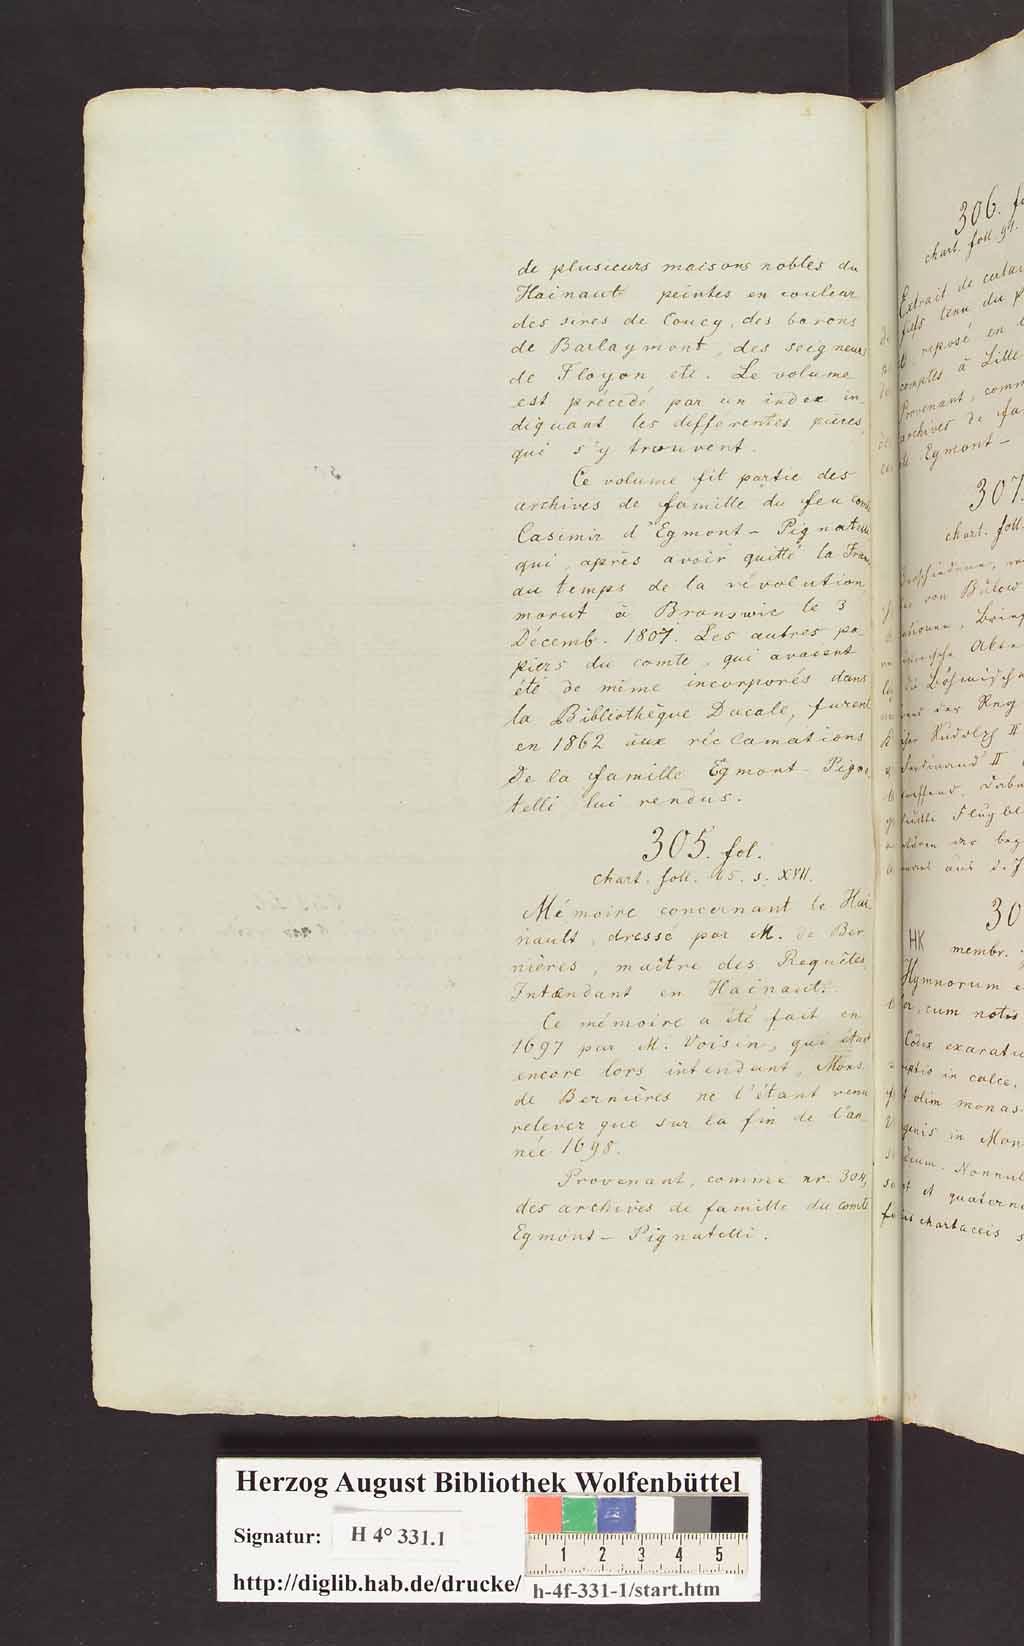 de plusieurs maisons nobles du
Hainaut peintes en couleur
des sires de Coucy, des barons
de Barlaymont, des seigneurs
de Floyon etc. Le volume
est précédé par un index in-
diquant les differentes pièces,
qui s'y trouvent.
Ce volume fit partie des
archives de famille du feu comte
Casimir d'Egmont-Pignatelli
qui, après avoir quitté la
au temps de la révolution,
morut à Bronswic le 3
Décemb. 1807. Les autres pa-
piers du comte, qui avaient
été de même incorporés dans
la Bibliothèque Ducale, furent
en 1862 aux réclamations
de la famille Egmont-Pigna-
telli lui rendus.
305. fol.
chart. foll. 15. s. XVII.
Mémoire concernant le Hai-
nault, dressé par M. de Ber-
nières, maître des Requêtes,
Intendant en Hainaut.
Ce mémoire a été fait en
1697 par M. Voisin, qui était
encore lors intendant, Mons.
de Bernières ne l'étant venu
relever que sur la fin de l'an-
née 1698.
Provenant, comme nr. 304,
des archives de famille du comte
Egmont-Pignatelli.
306.
chart. foll. 94.
Extrait de
fiefs tenu du
reposé en
comptes à Lille
Provenant,
archives de
Egmont-
307.
chart. foll.
von Bülow
Rudolph II
Ferdinand II
30
HK membr.
Hymnorum
cum notis
Codex
in calce.
olim
in
Nonnul
et
chartaceis
Herzog August Bibliothek Wolfenbüttel
Signatur: H 4° 331.1
1 2 3 4 5
http://diglib.hab.de/drucke/ h-4f-331-1/start.htm